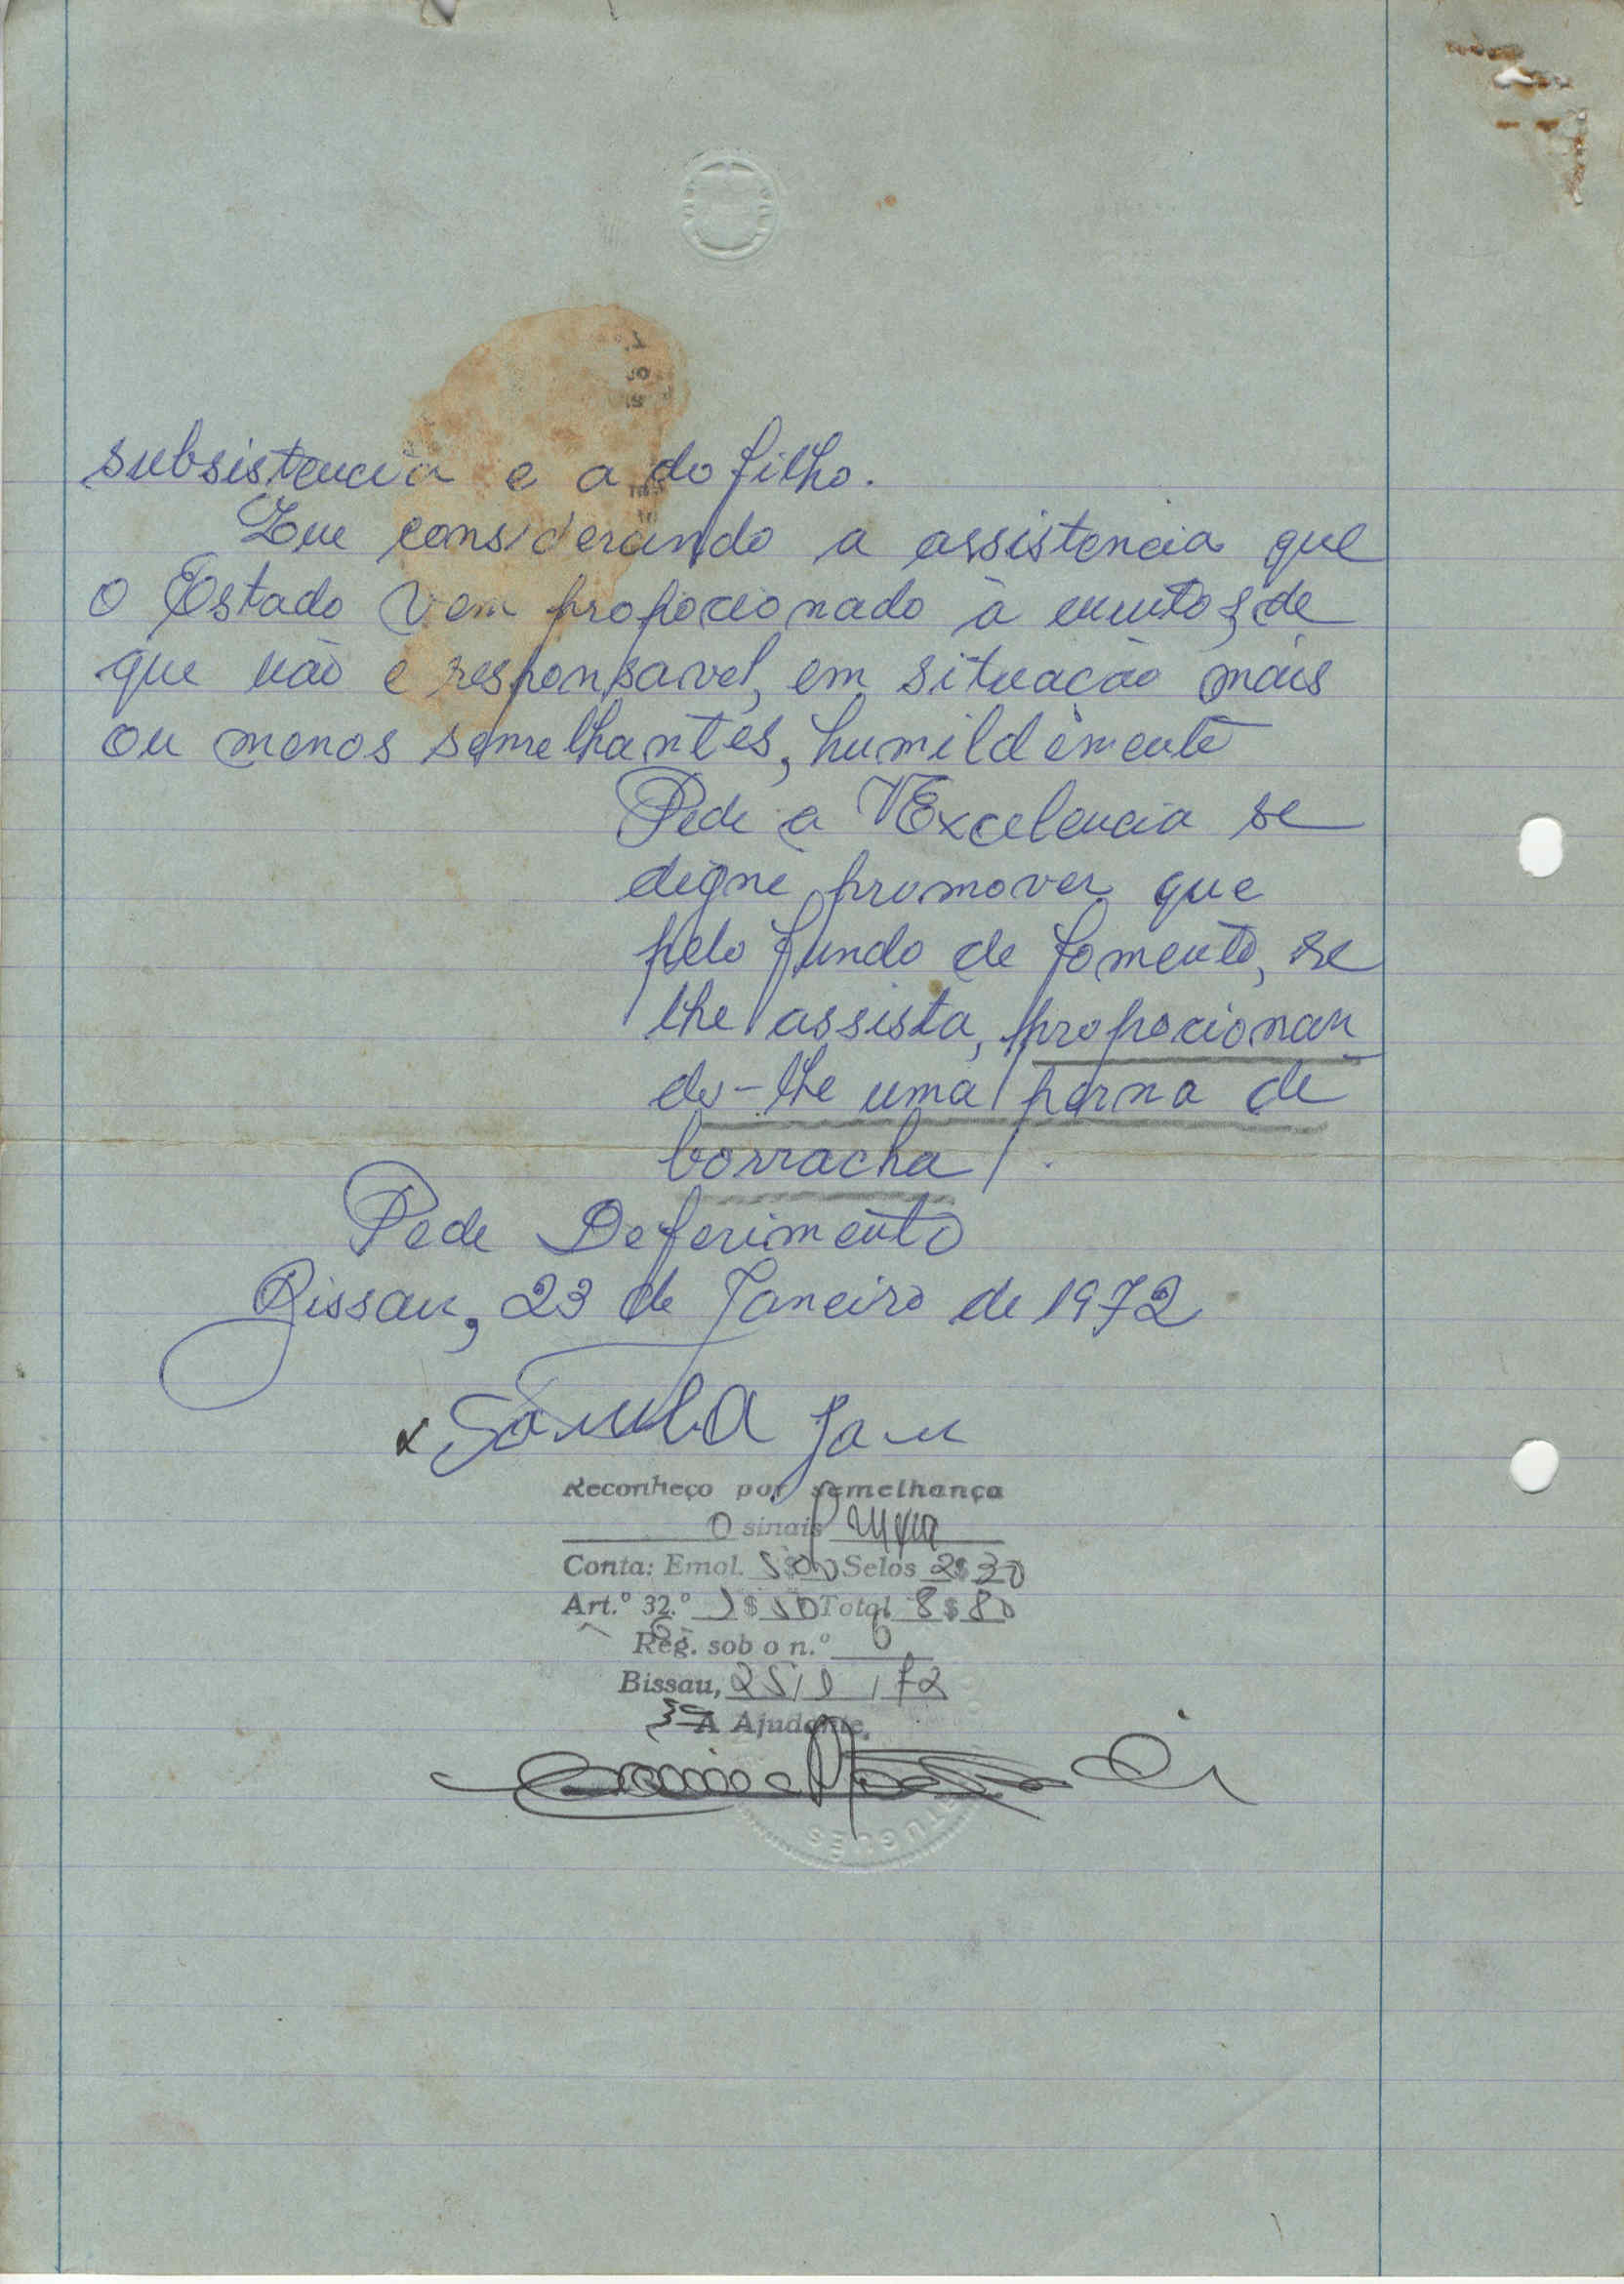 subsistencia e a do filho.
Que considerando a assistencia que
o Estado vem propocionado à muitos, de
que não é responsavel, em situação mais
ou menos semelhantes, humildemente
Pede a VExcelencia se
digne promover que
pelo fundo de fomento, se
lhe assista, propocionan
do-lhe uma perna de
borracha.
Pede Deferimento
Bissau, 23 de Janeiro de 1972
Samba Jau
Reconheço por semelhança
O sinais
Conta: Emol. 5$00 Selos 2$30
Art.º 32.º 1$50 Total 8$80
Reg. sob o n.º 6
Bissau, 25/1/72
A Ajudante,
TUGUÊS